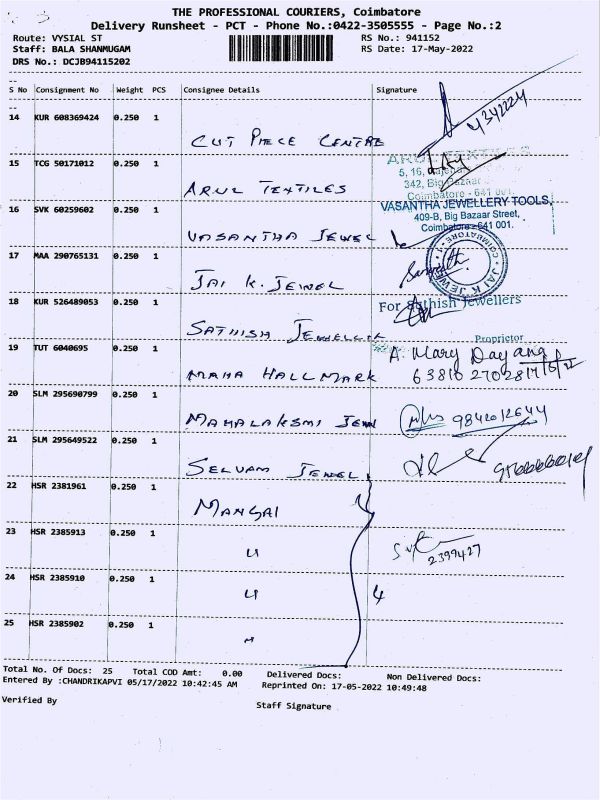 3
THE PROFESSIONAL COURIERS, Coimbatore
Delivery Runsheet - PCT - Phone No.:0422-3505555 - Page No.:2
Route: VYSIAL ST RS No.: 941152
Staff: BALA SHANMUGAM RS Date: 17-May-2022
DRS No.: DCJB94115202
S No Consignment No Weight PCS Consignee Details Signature
14 KUR 608369424 0.250 1
CUT PIECE CENTRE 4342224
15 TCG 50171012 0.250 1
ARUL TEXTILES
5, 16,
342, Big Bazaar
Coimbatore - 641 001.
ARUL TEXTILES
16 SVK 60259602 0.250 1
VASANTHA JEWELLERY TOOLS,
409-B, Big Bazaar Street,
Coimbatore - 641 001.
VASANTHA JEWEL
17 MAA 290765131 0.250 1
JAI K. JEWEL
18 KUR 526489053 0.250 1
For Sathish Jewellers
SATHISH JEWELLER
Proprietor
19 TUT 6040695 0.250 1
A. Mary Dayang
MAHA HALLMARK 63810 27028 17/5/22
20 SLM 295690799 0.250 1
MAHALAKSMI JEW 9842012644
21 SLM 295649522 0.250 1
SELVAM JEWEL
22 HSR 2381961 0.250 1
MANGAI
23 HSR 2385913 0.250 1
" 2399427
24 HSR 2385910 0.250 1
" 4
25 HSR 2385902 0.250 1
"
Total No. Of Docs: 25 Total COD Amt: 0.00 Delivered Docs: Non Delivered Docs:
Entered By :CHANDRIKAPVI 05/17/2022 10:42:45 AM Reprinted On: 17-05-2022 10:49:48
Verified By Staff Signature